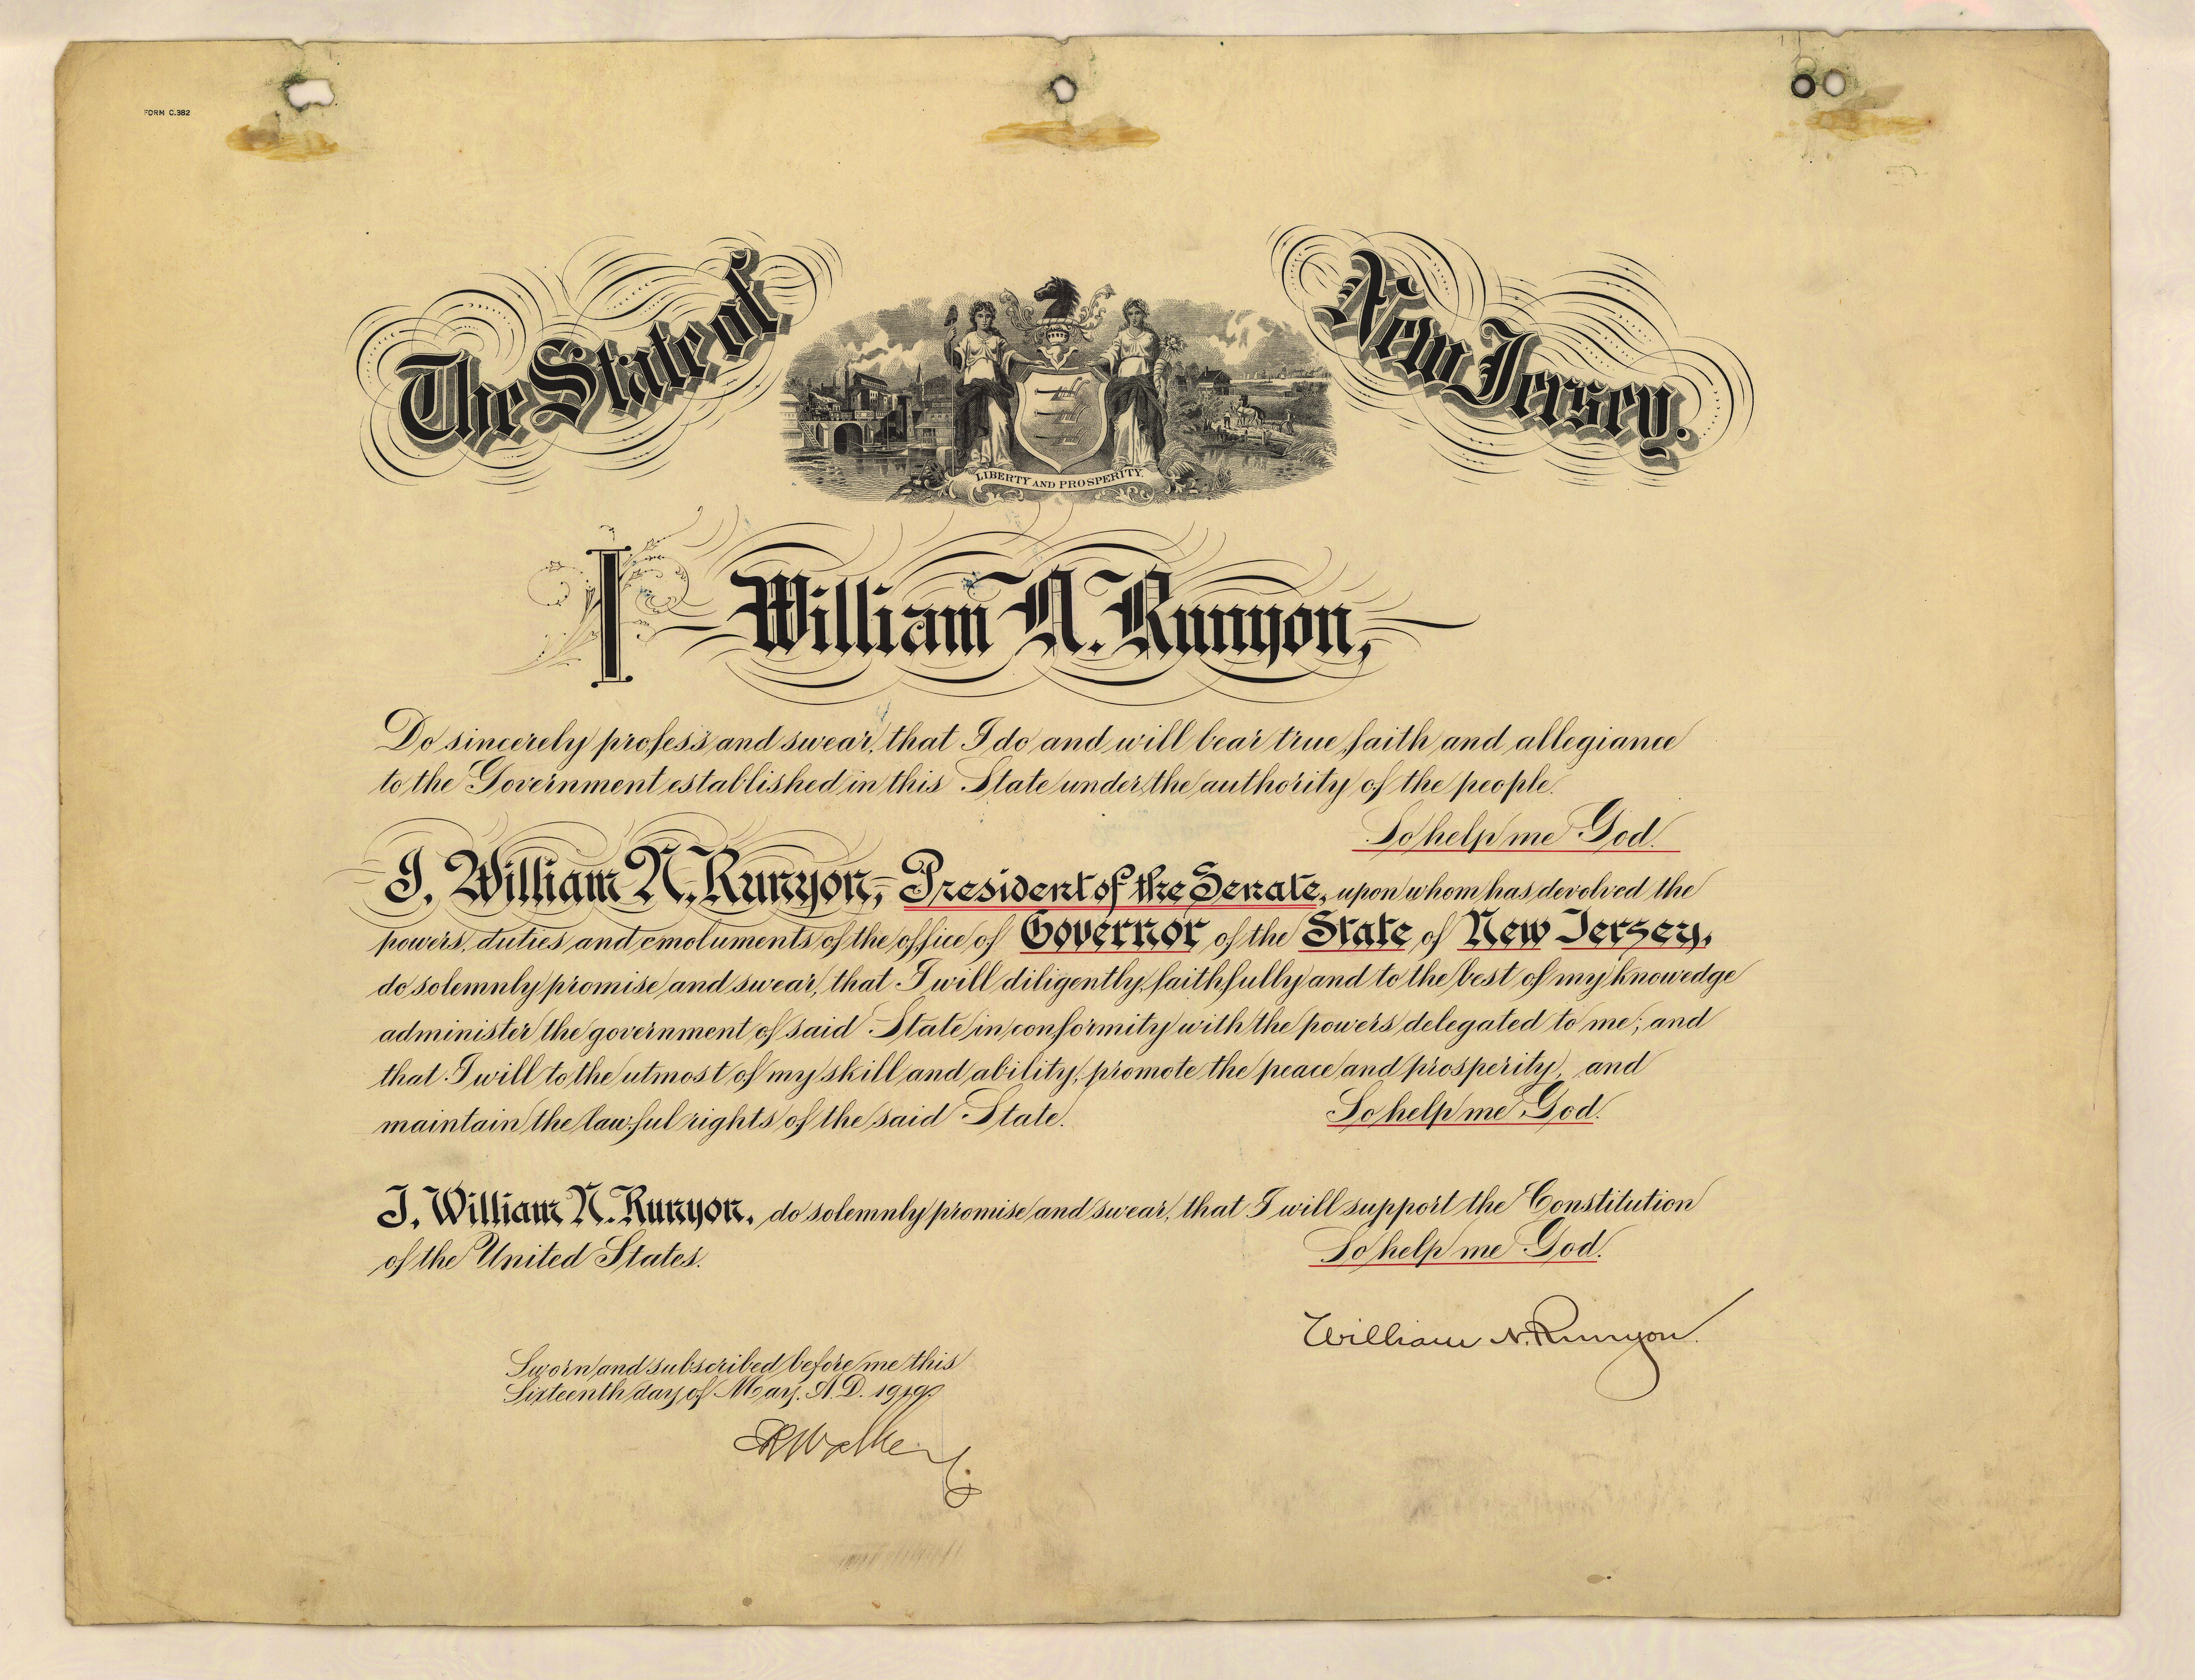 FORM C.382
The State of New Jersey.
LIBERTY AND PROSPERITY
I William N. Runyon,
Do sincerely profess and swear, that I do and will bear true faith and allegiance
to the Government established in this State under the authority of the people.
So help me God.
I, William N. Runyon, President of the Senate, upon whom has devolved the
powers, duties and emoluments of the office of Governor of the State of New Jersey,
do solemnly promise and swear, that I will diligently, faithfully and to the best of my knowedge
administer the government of said State in conformity with the powers delegated to me; and
that I will to the utmost of my skill and ability, promote the peace and prosperity, and
maintain the lawful rights of the said State.
So help me God.
I, William N. Runyon, do solemnly promise and swear, that I will support the Constitution
of the United States.
So help me God.
William N. Runyon.
Sworn and subscribed before me this
Sixteenth day of May, A.D. 1919.
ERWalker
C.